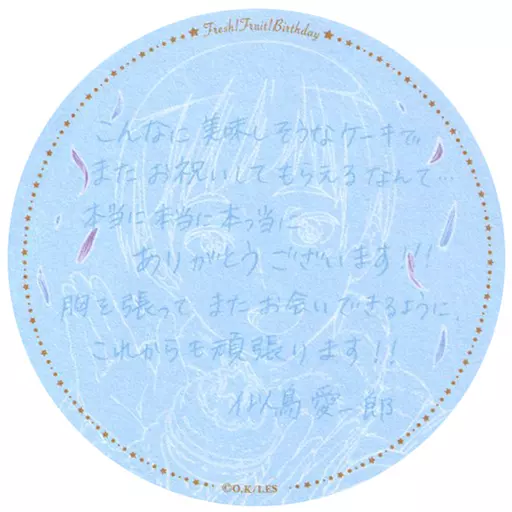 Fresh!Fruit!Birthday
こんなに美味しそうなケーキで、
またお祝いしてもらえるなんて…
本当に本当に本っ当に、
ありがとうございます!!!
胸を張って またお会いできるように、
これからも頑張ります!!
似鳥愛一郎
©O.K/I.ES